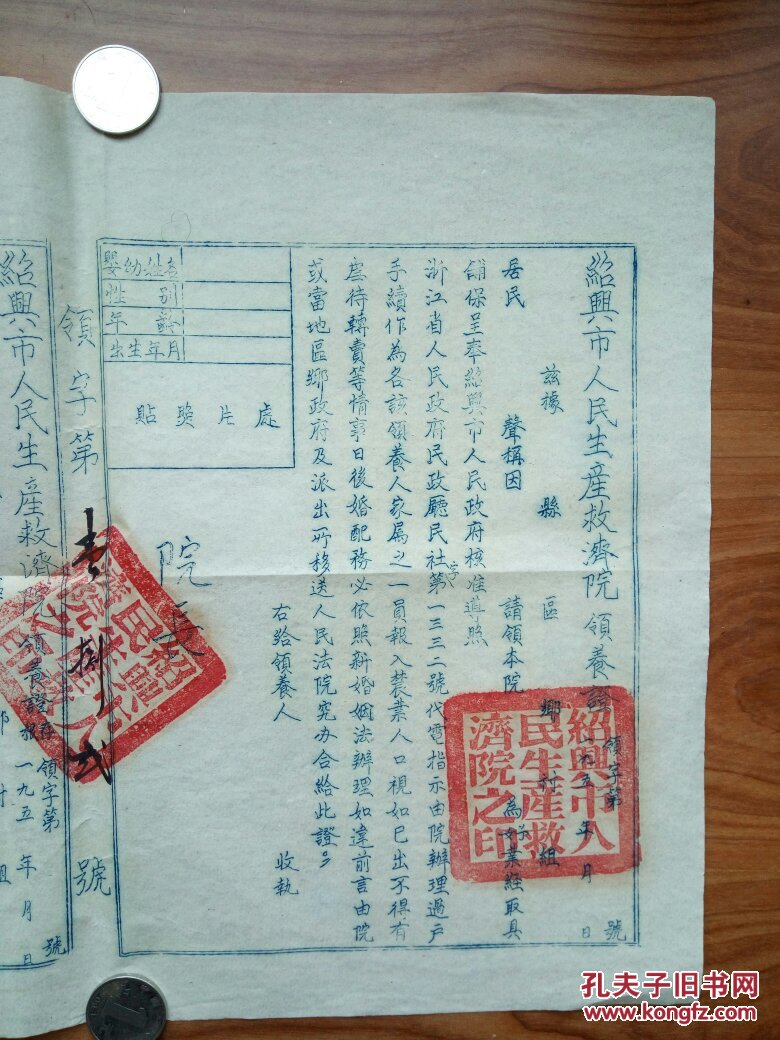 紹興市人民生產救濟院領養證
領字第 號
一九五 年 月 日
茲據 縣 區 鄉 村 組
居民 聲稱因 請領本院 為 業經取具
鋪保呈奉紹興市人民政府核准導照
浙江省人民政府民政廳民社字第一三三二號代電指示由院辦理過戶
手續作為各該領養人家屬之一員報入農業人口視如己出不得有
虐待轉賣等情事日後婚配務必依照新婚姻法辦理如違前言由院
或當地區鄉政府及派出所移送人民法院究办合給此證
右給領養人 收執
院長
嬰幼姓名
性別
年齡
出生年月
貼照片處
紹興市人民生產救濟院之印
領字第壹捌弍號
紹興市人民生產救濟院領養證存根
領字第 號
一九五 年 月 日
孔夫子旧书网
www.kongfz.com